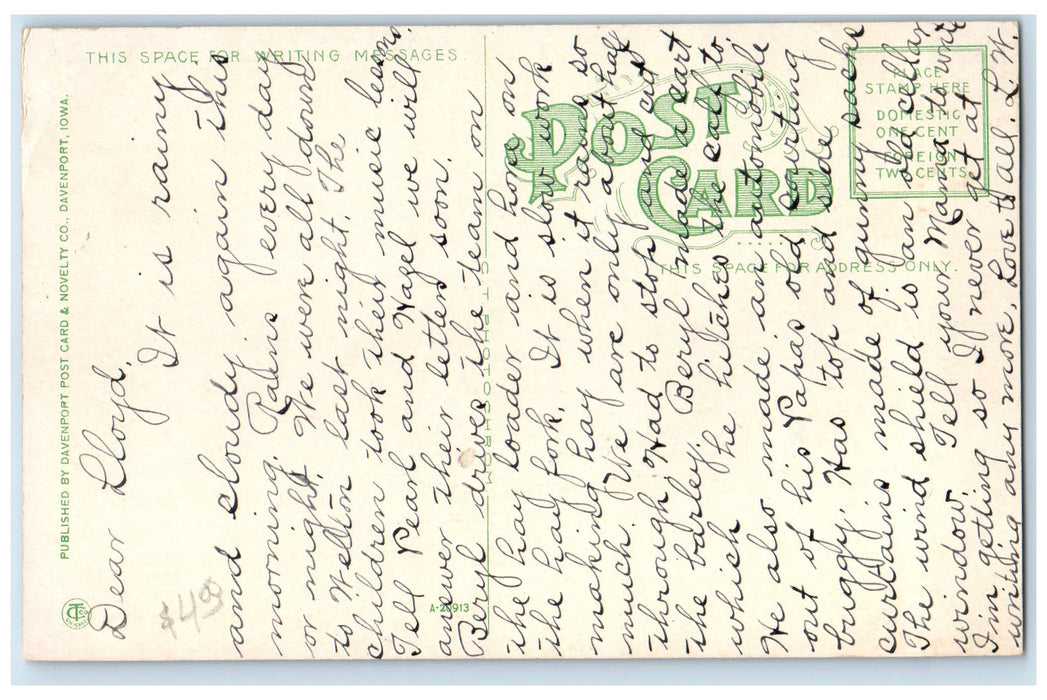 THIS SPACE FOR WRITING MESSAGES
PUBLISHED BY DAVENPORT POST CARD & NOVELTY CO., DAVENPORT, IOWA.
POST CARD
PLACE
STAMP HERE
DOMESTIC
ONE CENT
FOREIGN
TWO CENTS
THIS SPACE FOR ADDRESS ONLY.
A-20913
$4
Dear Lloyd,
It is rainy
and cloudy again this
morning. Rains every day
or night. We were all down
to Welton last night. The
children took their music lessons.
Tell Pearl and Hazel we will
answer their letters soon.
Beryl drives the team on
the hay loader and hope on
the hay fork. It is slow work
making hay when it rains so
much. We are only about half
through. Had to stop and cut
the barley. Beryl made a cart
which he hitches the calf to.
He also made an automobile
out of his Papas old courting
buggy. Has top and side
curtains made of gunny sacks
The wind shield is an old cellar
window. Tell your Mama the wont
I'm getting so I never get at
writing any more. Love to all. L. W.